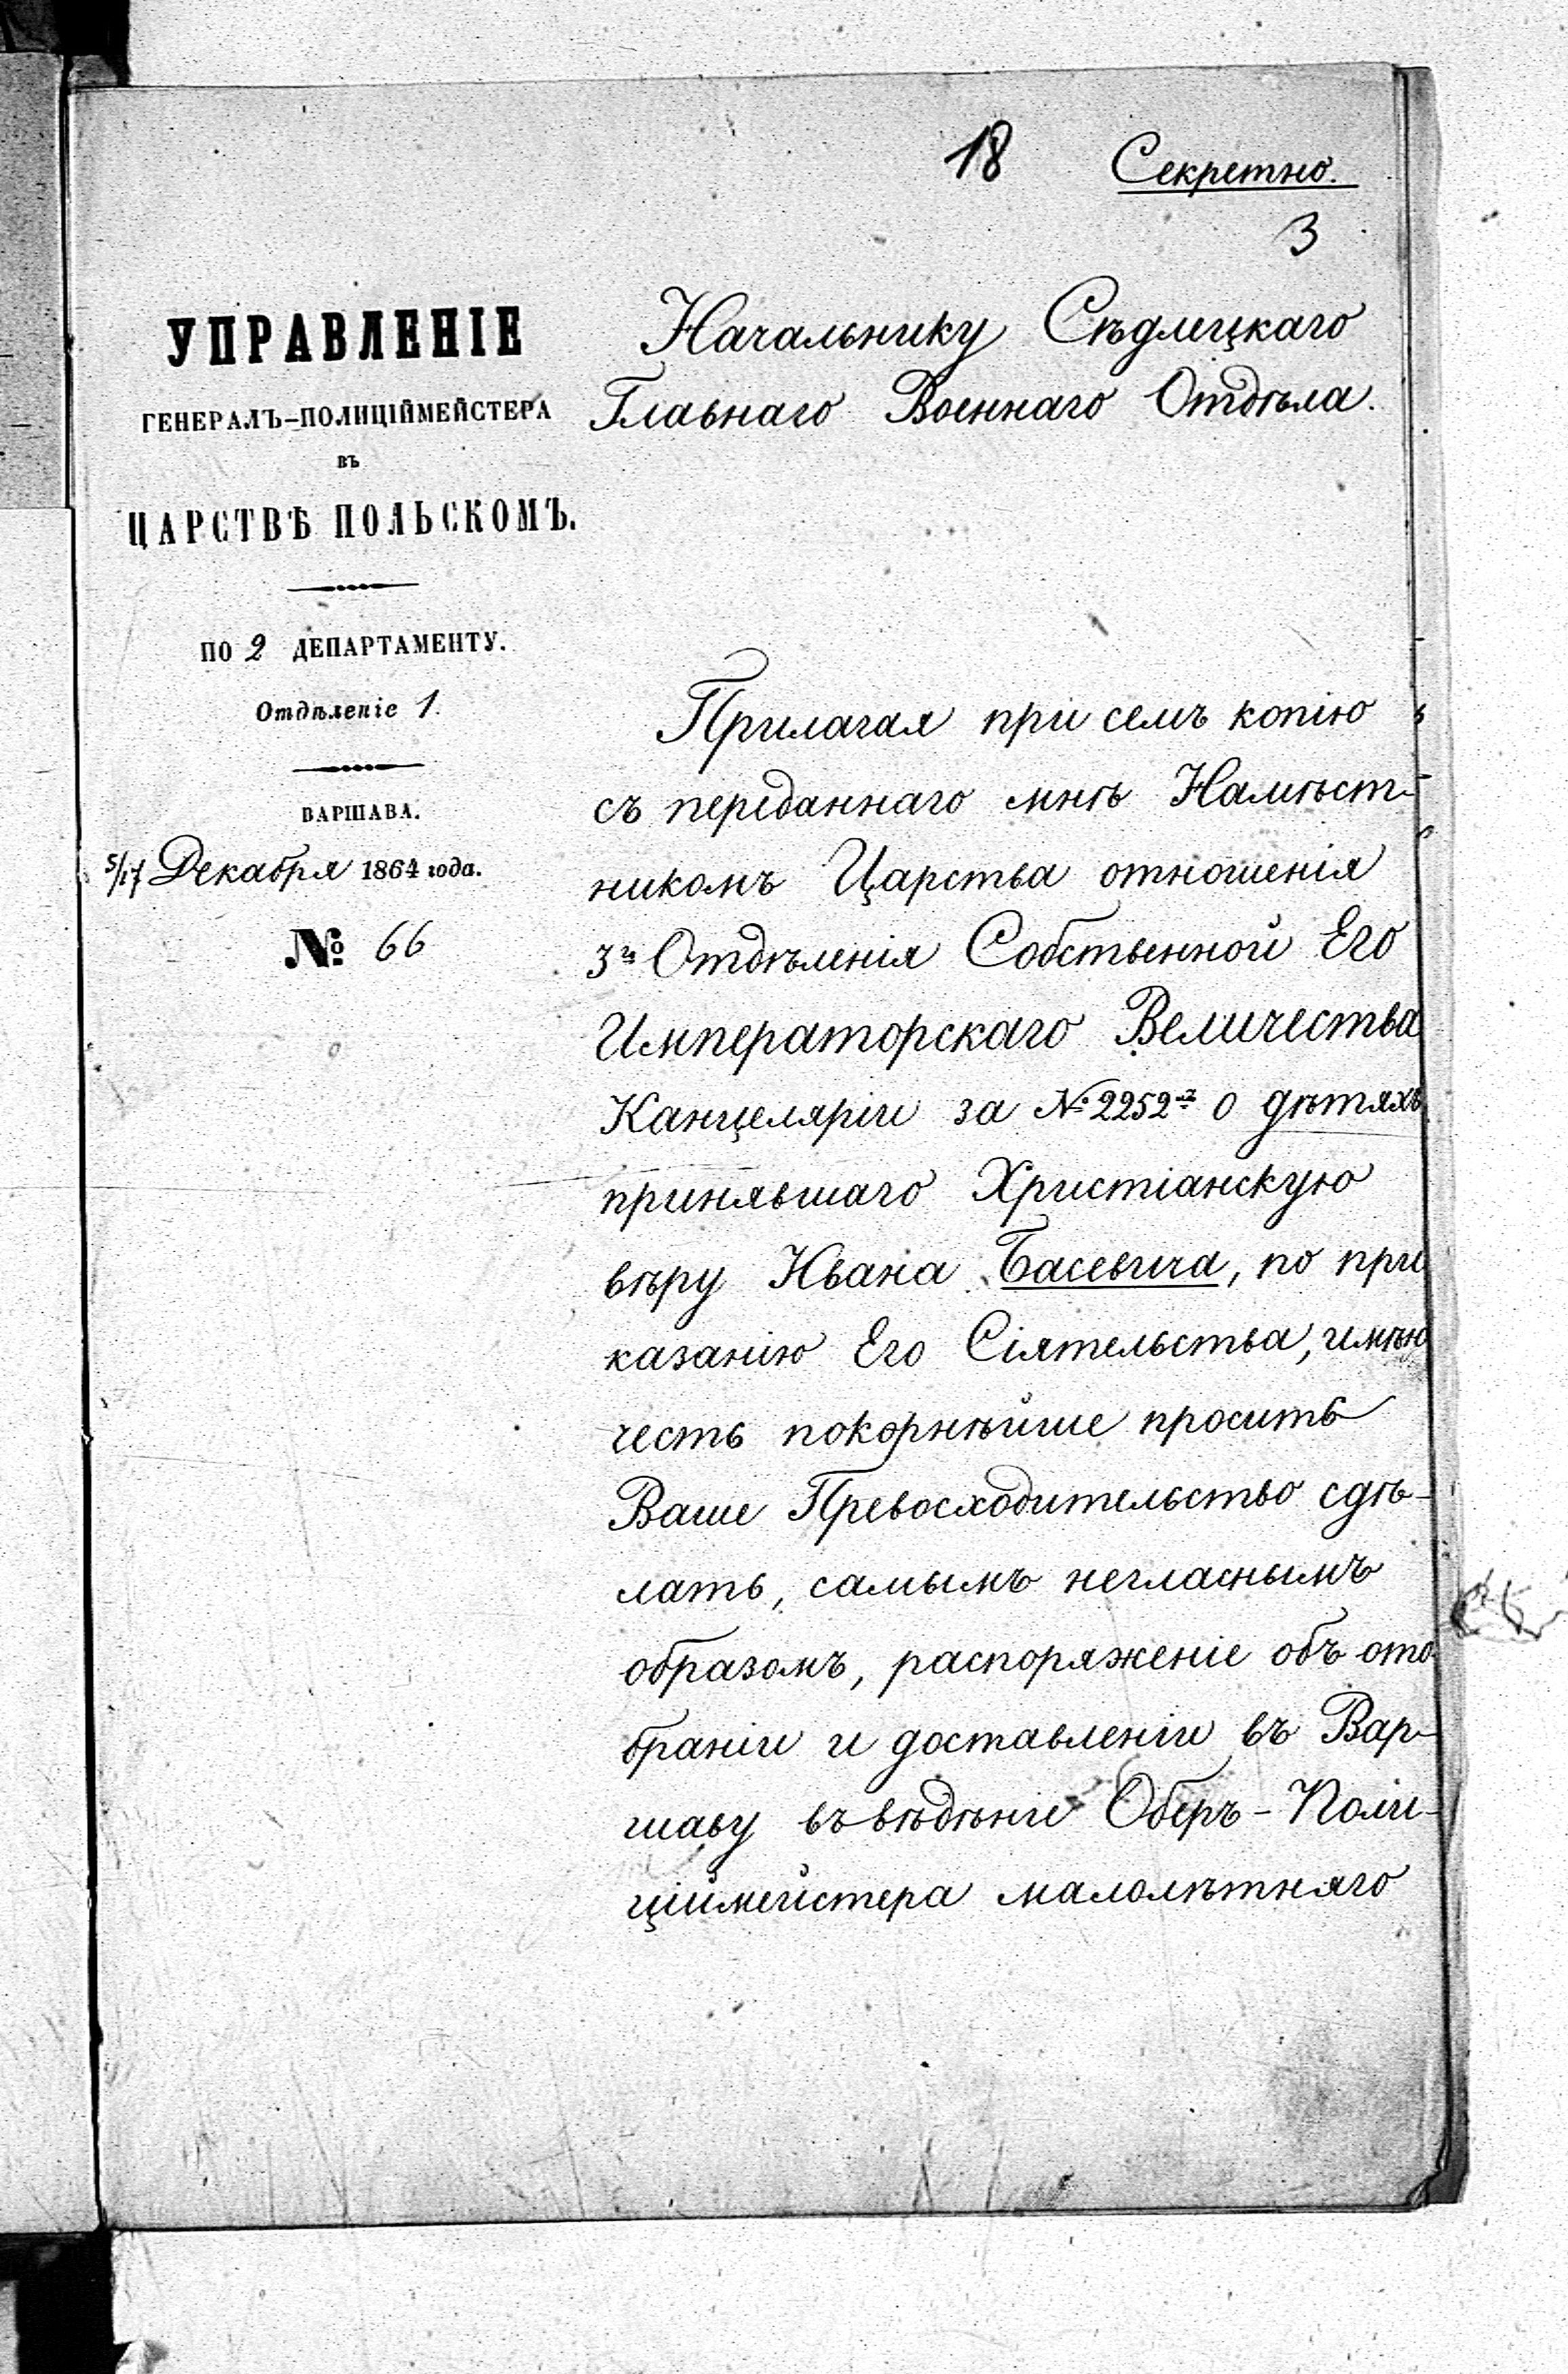 18 Секретно.
3
УПРАВЛЕНІЕ
ГЕНЕРАЛЪ-ПОЛИЦІЙМЕЙСТЕРА
ВЪ
ЦАРСТВѢ ПОЛЬСКОМЪ.
ПО 2 ДЕПАРТАМЕНТУ.
Отдѣленіе 1.
ВАРШАВА.
5/17 Декабря 1864 года.
№ 66
Начальнику Сѣдлецкаго
Главнаго Военнаго Отдѣла.
Прилагая при семъ копію
съ переданнаго мнѣ Намѣст-
никомъ Царства отношенія
3го Отдѣленія Собственной Его
Императорскаго Величества
Канцеляріи за № 2252 о дѣтяхъ
принявшаго Христіанскую
вѣру Ивана Басевича, по при
казанію Его Сіятельства, имѣю
честь покорнѣйше просить
Ваше Превосходительство сдѣ-
лать, самымъ негласнымъ
образомъ, распоряженіе объ ото
браніи и доставленіи въ Вар-
шаву въ вѣдѣніе Оберъ-Поли-
ціймейстера малолѣтняго